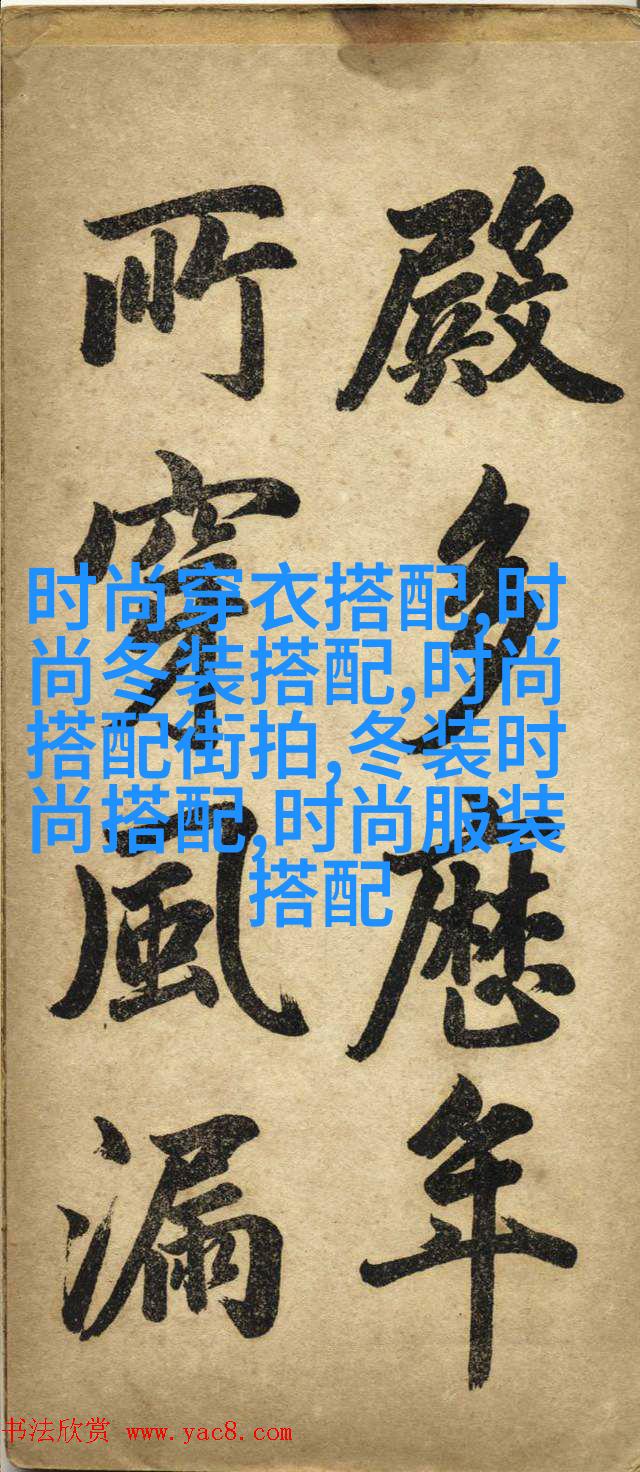 殿多歷年
所穿風漏
时尚穿衣搭配,时
尚冬装搭配,时尚
搭配街拍,冬装时
尚搭配,时尚服装
搭配
书法欣赏 www.yac8.com